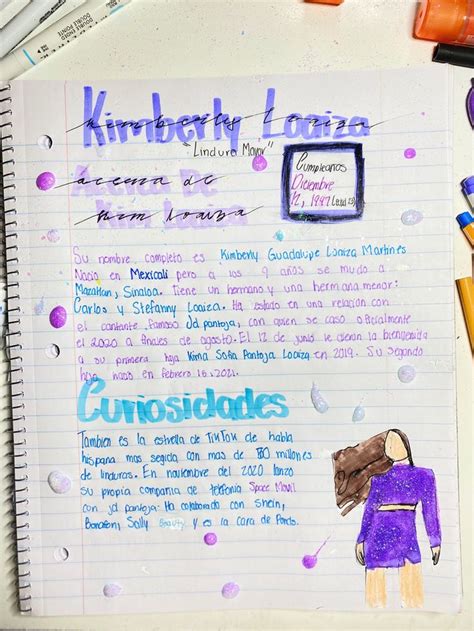 Kimberly Loaiza
Kimberly Loaiza
"Lindura Mayor"
Cumpleaños
Diciembre
12, 1997 (edad 23)
Acerca De
acerca de
Kim Loaiza
Kim Loaiza
Su nombre completo es Kimberly Guadalupe Loaiza Martines
Nacio en Mexicali pero a los 9 años se mudo a
Mazatlan, Sinaloa. Tiene un hermano y una hermana menor:
Carlos y Stefanny Loaiza. Ha estado en una relacion con
el cantante famoso Jd pantoja, con quien se caso oficialmente
el 2020 a finales de agosto. El 12 de junio le dieron la bienvenida
a su primera hija Kima Sofia Pantoja Loaiza en 2019. Su segundo
hijo nacio en febrero 16, 2021.
Curiosidades
Tambien es la estrella de TikTok de habla
hispana mas seguida con mas de millones
de linduras. En noviembre del 2020 lanzo
su propia compania de telefonia Space Movil
con jd pantoja. Ha colaborado con shein,
Bonafon, Sally Beauty. Y es la cara de Ponds.